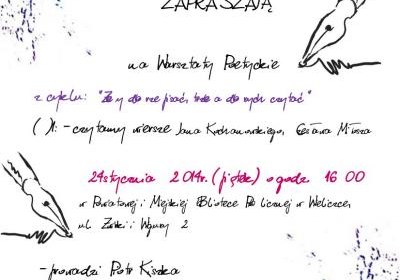 ZAPRASZAJĄ
na Warsztaty Poetyckie
z cyklu: "Żeby dobrze pisać, trzeba dobrych czytać"
- czytamy wiersze Jana Kochanowskiego, Czesława Miłosza
24 stycznia 2014r. (piątek) o godz. 16 00
w Powiatowej i Miejskiej Bibliotece Publicznej w Wieliczce,
ul. 2
- prowadzi Piotr Kiszka